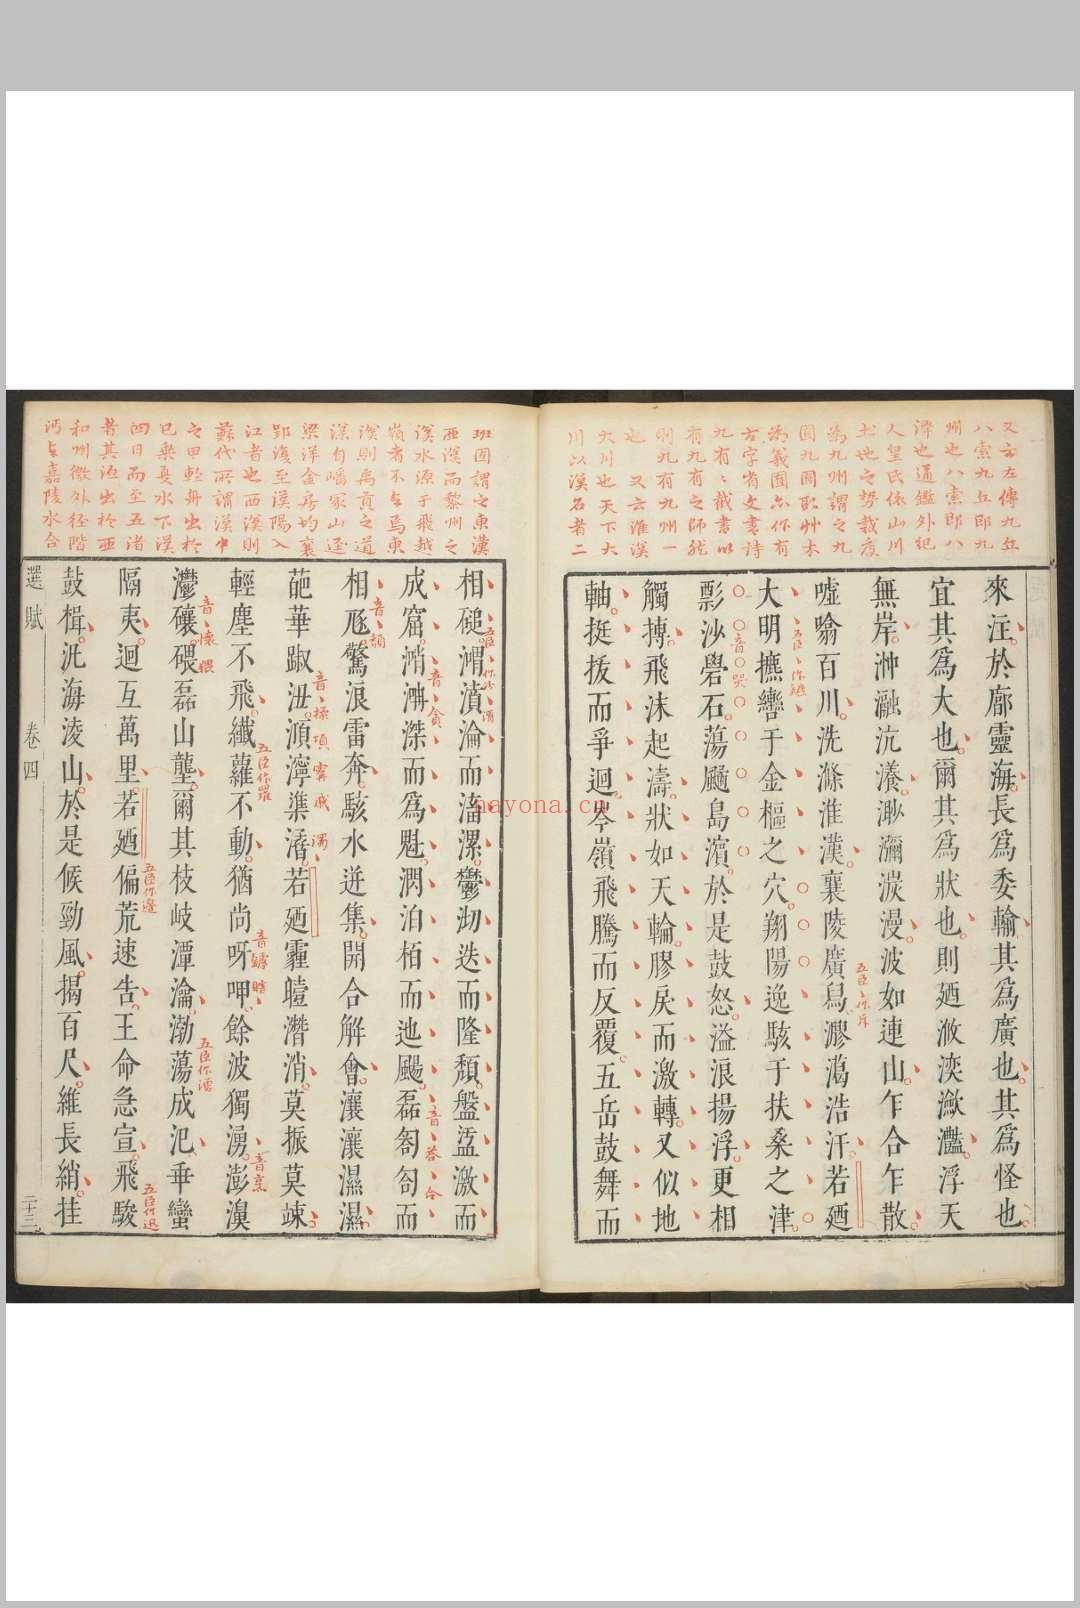 又云左傳九丘
八索九丘即九
州也八索即八
澤也通鑑外紀
人皇氏依山川
土地之勢裁度
為九州謂之九
囿九囿
為義囿亦作有
古字省文書詩
九有九有截書以
有九有之師
則九有九州一
也 又云淮漢
大川也天下大
川以漢名者二
來汪於廓靈海長為委輸其為廣也其為怪也
宜其為大也爾其為狀也則廼浟湙瀲灩浮天
無岸沖瀜沆瀁渺瀰湠漫波如連山乍合乍散
噓噏百川洗滌淮漢襄陵廣舄㵧㵣浩汗若廼
大明摭轡于金樞之穴翔陽逸駭于扶桑之津
彯沙礐石蕩䬍島濱於是鼓怒溢浪揚浮更相
觸搏飛沫起濤狀如天輪膠戾而激轉又似地
軸挺拔而爭迴岑嶺飛騰而反覆五岳鼓舞而
音哭
五臣作斥
班固謂之東漢
西漢而黎州之
漢水源于飛越
嶺者不與焉東
漢則禹貢之道
漾自嶓冢山逕
梁洋金房均襄
郢復至漢陽入
江者也西漢則
蘇代所謂漢中
之甲輕舟出於
巴乘夏水下漢
四日而至五渚
者其源出於西
和州徼外徑階
沔與嘉陵水合
相磓渭濆淪而滀漯鬱沏迭而隆頹盤盓激而
成窟㴥㴸滐而為魁㴋泊栢而迆颺磊匒匌而
相豗驚浪雷奔駭水迸集開合解會瀼瀼濕濕
葩華踧沑澒濘潗㵫若廼霾曀潛消莫振莫竦
輕塵不飛纖蘿不動猶尚呀呷餘波獨湧澎濞
灪磙碨磊山壟爾其枝岐潭瀹渤蕩成汜乖蠻
隔夷迴互萬里若廼偏荒速告王命急宣飛駿
鼓楫汎海淩山於是候勁風揭百尺維長綃挂
五臣作蘿
五臣作邊
五臣作迅
選賦 卷四 二十三
nayona.cn